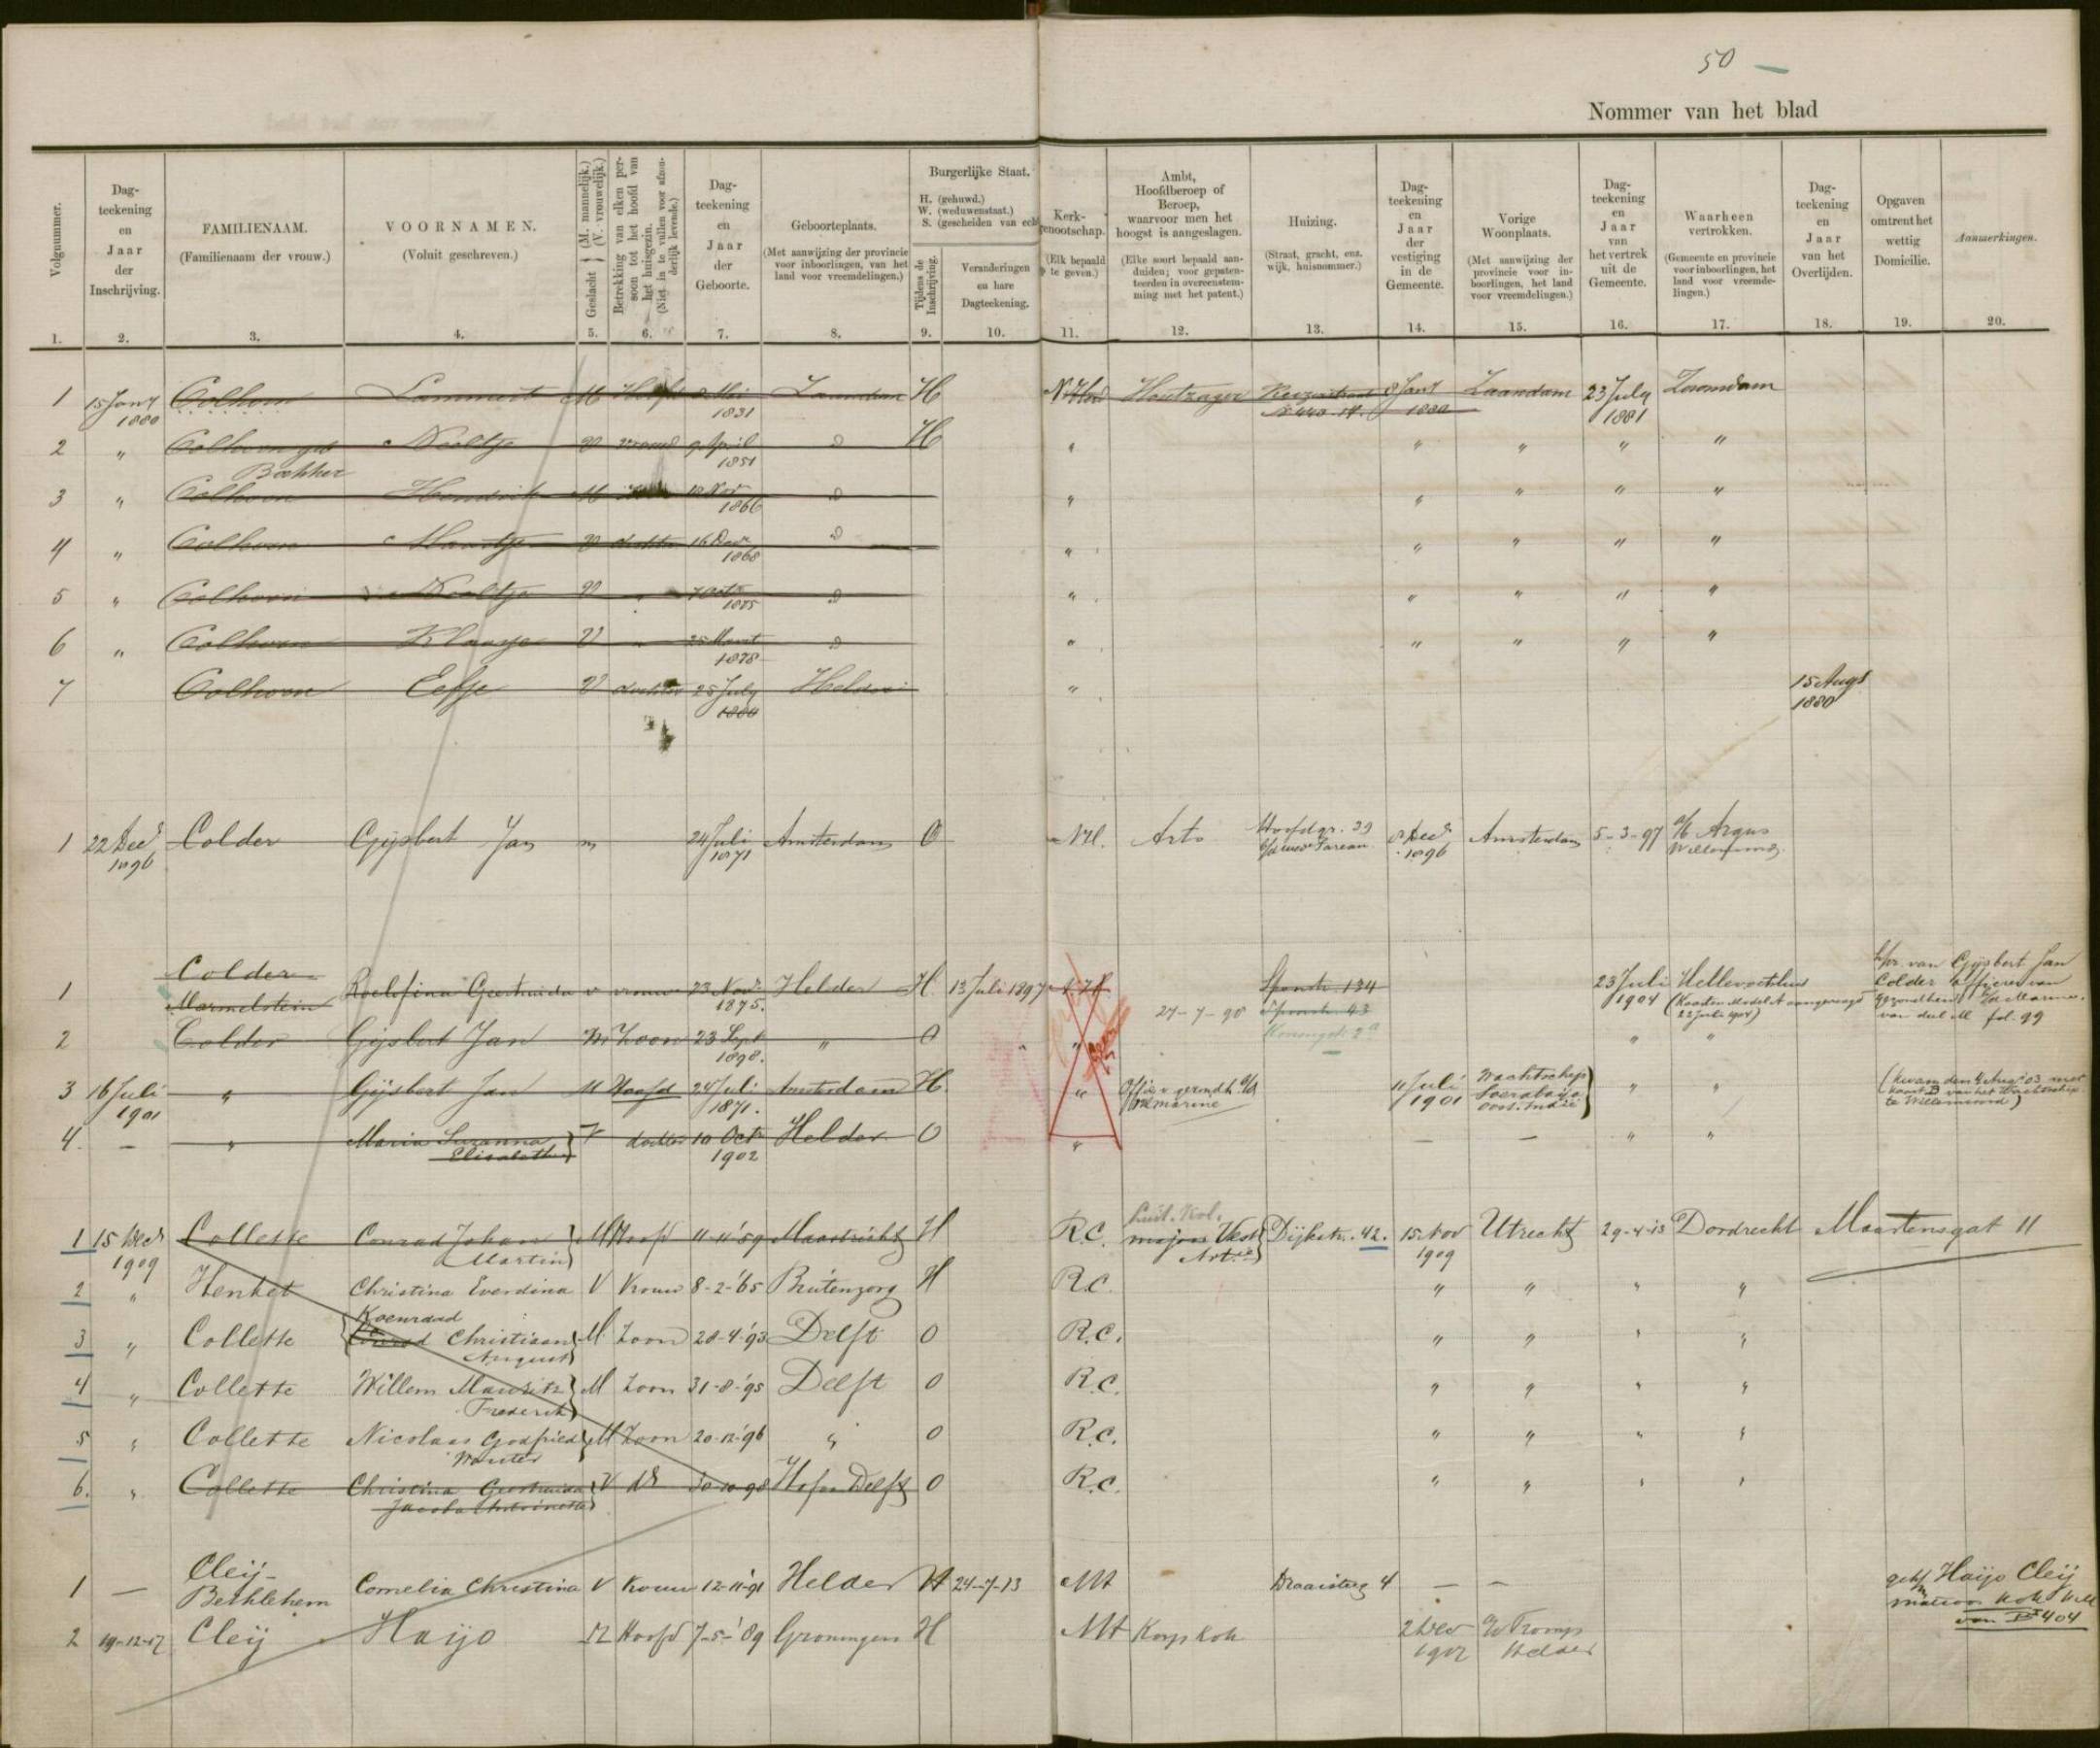 50 —
Nommer van het blad
Volgnummer.
Dag-
teekening
en
Jaar
der
Inschrijving.
FAMILIENAAM.
(Familienaam der vrouw.)
VOORNAMEN.
(Voluit geschreven.)
Geslacht (M. mannelijk.) (V. vrouwelijk.)
Betrekking van elken per-
soon tot het hoofd van
het huisgezin.
(Niet in te vullen voor afzon-
derlijk levende.)
Dag-
teekening
en
Jaar
der
Geboorte.
Geboorteplaats.
(Met aanwijzing der provincie
voor inboorlingen, van het
land voor vreemdelingen.)
Burgerlijke Staat.
H. (gehuwd.)
W. (weduwenstaat.)
S. (gescheiden van ech
Tijdens de
Inschrijving.
Veranderingen
en hare
Dagteekening.
Kerk-
genootschap.
(Elk bepaald
te geven.)
Ambt,
Hoofdberoep of
Beroep,
waarvoor men het
hoogst is aangeslagen.
(Elke soort bepaald aan-
duiden; voor gepaten-
teerden in overeenstem-
ming met het patent.)
Huizing.
(Straat, gracht, enz.
wijk, huisnommer.)
Dag-
teekening
en
Jaar
der
vestiging
in de
Gemeente.
Vorige
Woonplaats.
(Met aanwijzing der
provincie voor in-
boorlingen, het land
voor vreemdelingen.)
Dag-
teekening
en
Jaar
van
het vertrek
uit de
Gemeente.
Waarheen
vertrokken.
(Gemeente en provincie
voor inboorlingen, het
land voor vreemde-
lingen.)
Dag-
teekening
en
Jaar
van het
Overlijden.
Opgaven
omtrent het
wettig
Domicilie.
Aanmerkingen.
1. 2. 3. 4. 5. 6. 7. 8. 9. 10. 11. 12. 13. 14. 15. 16. 17. 18. 19. 20.
1 15 Jany 1880 Colhoen Lammert M Hoofd Mei 1831 Zaandam H Houtzager 8 Jany 1880 Zaandam 23 July 1881 Zaandam
2 " Colhoen geb Neeltje V vrouw 9 April 1851 D H " " " " "
3 " Colhoen Hendrik M 18 Nov 1866 D " " " " "
4 " Colhoen Maartje V dochter 16 Decr 1868 D " " " " "
5 " Colhoen Neeltje V " 1875 D " " " " "
6 " Colhoen Klaasje V " 25 Maart 1878 D " " " " "
7 Colhoen Eefje V dochter 25 July 1880 Helder " 15 Augs 1880
1 22 Decr 1896 Colder Gijsbert Jan m 24 Juli 1871 Amsterdam O NH. Arts Hoofdgr. 39 Decr 1896 Amsterdam 5-3-97 a/b Argus Willemsoord
1 Colder Marmelstein Roelfina Geertruida v vrouw 23 Novr 1875. Helder H. 13 Juli 1897 N.H. Spoorstr 124 23 Juli 1904 Hellevoetsluis
van Gijsbert Jan
Colder officier van
gezondheid
van deel M fol. 99
27-7-98 Spoorstr. 93
2 Colder Gijsbert Jan M Zoon 23 Sept 1898. " O " " "
3 16 Juli 1901 " Gijsbert Jan M Hoofd 24 Juli 1871. Amsterdam H. " Offic v gezndh. marine 11 Juli 1901 Wachtschip Soerabaija Oost. Indië " "
te Willemsoord)
4. — " Maria Suzanna Elisabeth V dochter 10 Octr 1902 Helder O " — — " "
1 15 Dec 1909 Collette Conrad Johan Martin M Hoofd 11-11-'59 Maastricht H R.C. Luit. Kol. majoor Vest Artie Dijkstr. 42. 15 Nov 1909 Utrecht 29-4-13 Dordrecht Maartensgat 11
2 " Henket Christina Everdina V Vrouw 8-2-'65 Buitenzorg H R.C. " " " "
3 " Collette Koenraad Conrad Christiaan August M Zoon 28-4-'93 Delft O R.C. " " " "
4 " Collette Willem Mauritz Frederik M Zoon 31-8-'95 Delft O R.C. " " " "
5 " Collette Nicolaas Godfried Wouter M Zoon 20-12-'96 " O R.C. " " " "
6. " Collette Christina Geertruida Jacoba Antoinette V dr 30-10-98 Hof van Delft O R.C. " " " "
1 — Cleij- Bethlehem Cornelia Christina V Vrouw 12-11-'91 Helder H 24-7-13 NH Draaisteeg 4 — —
Haijo Cleij
matroos kok
404
2 19-12-17 Cleij Haijo M Hoofd 7-5-'89 Groningen H NH Korp kok 2 Dec 1917 Tromp Helder